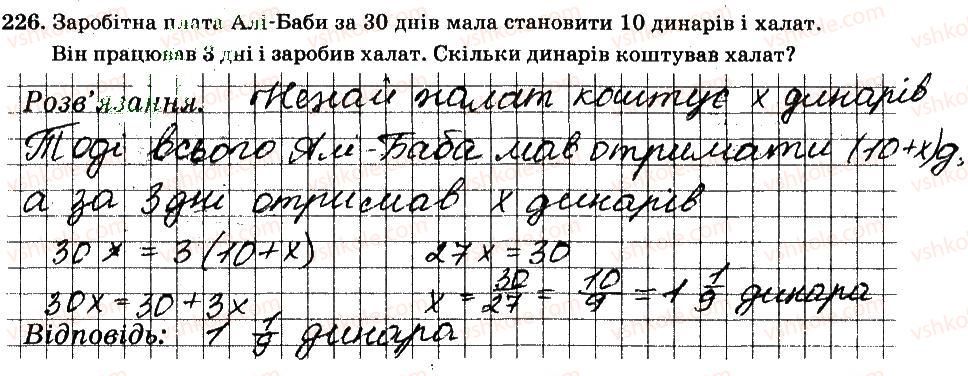 226. Заробітна плата Алі-Баби за 30 днів мала становити 10 динарів і халат.
Він працював 3 дні і заробив халат. Скільки динарів коштував халат?
Розв'язання. Нехай халат коштує x динарів
Тоді всього Алі-Баба мав отримати (10+x)д,
а за 3 дні отримав x динарів
30x = 3(10+x) 27x = 30
30x = 30 + 3x x = 30/27 = 10/9 = 1 1/9 динара
Відповідь: 1 1/9 динара